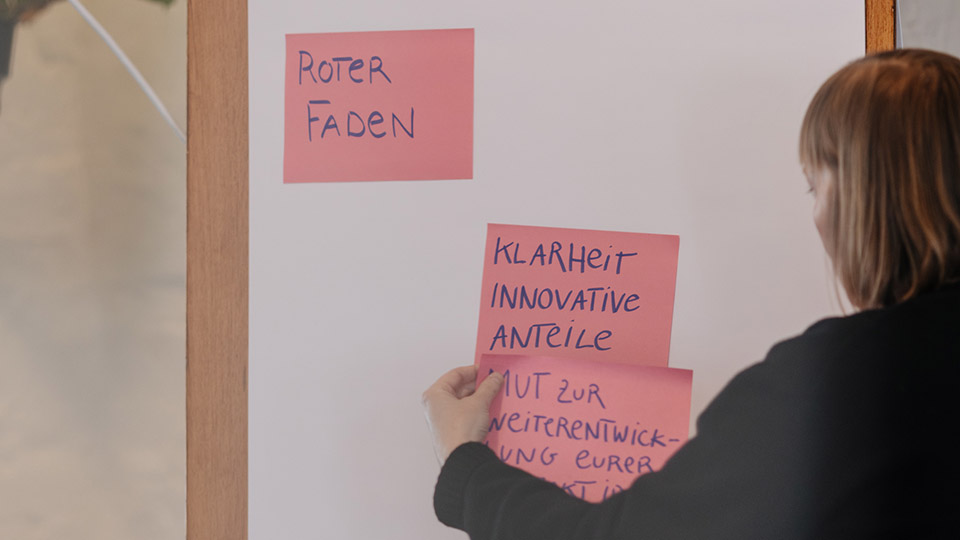 ROTER
FADEN
KLARHEIT
INNOVATIVE
ANTEILE
MUT ZUR
WEITERENTWICK-
LUNG EURER